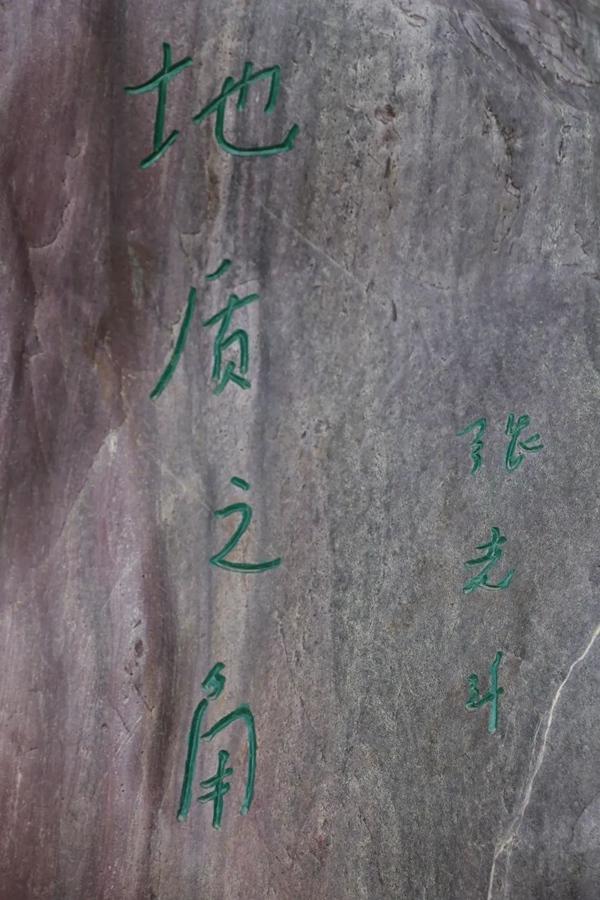 地质之角
张克斗